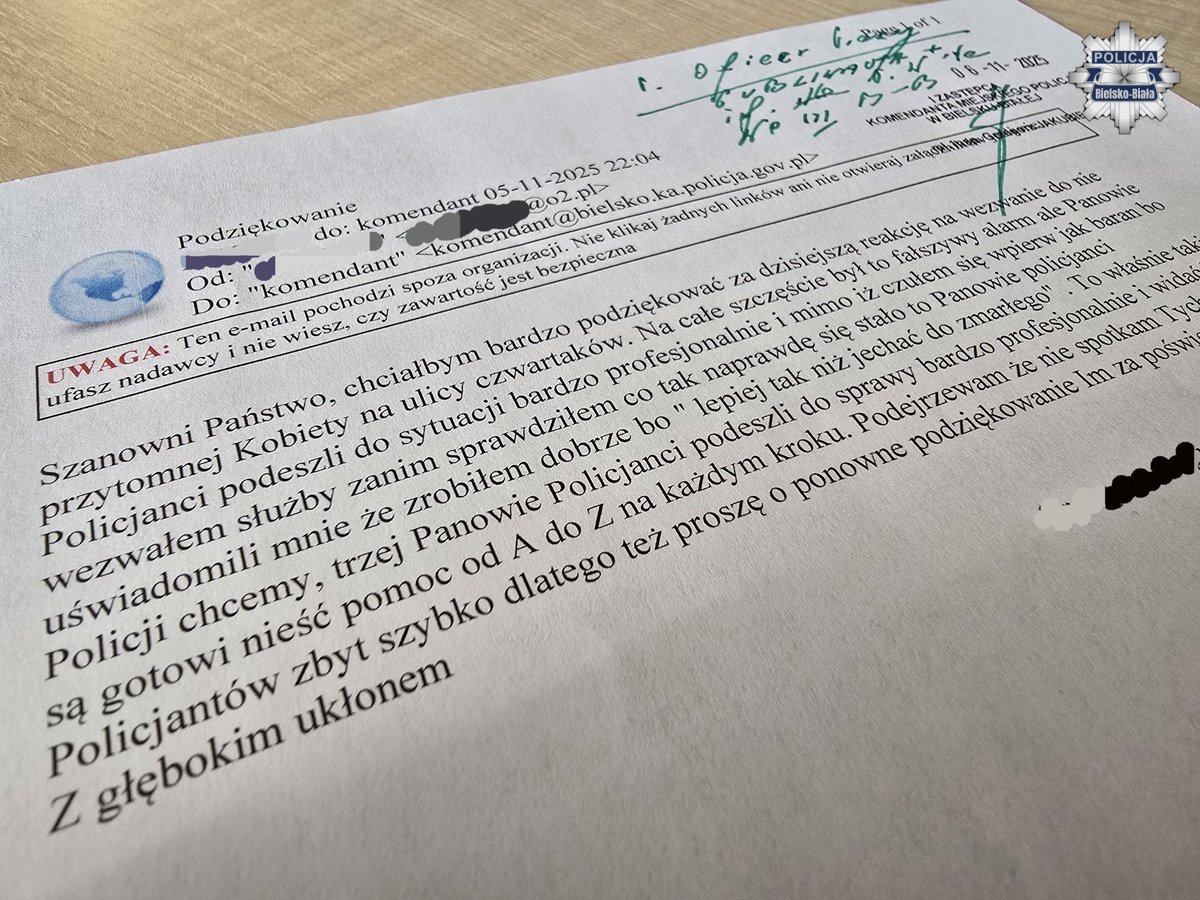 POLICJA
Bielsko-Biała
of 1
06-11-2025
I ZASTĘPCA
KOMENDANTA MIEJSKIEGO POLICJI
W BIELSKU-BIAŁEJ
Podziękowanie
do: komendant 05-11-2025 22:04
Od: " @o2.pl>
Do: "komendant" <komendant@bielsko.ka.policja.gov.pl>
UWAGA: Ten e-mail pochodzi spoza organizacji. Nie klikaj żadnych linków ani nie otwieraj
ufasz nadawcy i nie wiesz, czy zawartość jest bezpieczna
Szanowni Państwo, chciałbym bardzo podziękować za dzisiejszą reakcję na wezwanie do nie
przytomnej Kobiety na ulicy czwartaków. Na całe szczęście był to fałszywy alarm ale Panowie
Policjanci podeszli do sytuacji bardzo profesjonalnie i mimo iż czułem się wpierw jak baran bo
wezwałem służby zanim sprawdziłem co tak naprawdę się stało to Panowie policjanci
uświadomili mnie że zrobiłem dobrze bo " lepiej tak niż jechać do zmarłego" . To właśnie
Policji chcemy, trzej Panowie Policjanci podeszli do sprawy bardzo profesjonalnie i
są gotowi nieść pomoc od A do Z na każdym kroku. Podejrzewam że nie spotkam
Policjantów zbyt szybko dlatego też proszę o ponowne podziękowanie Im za
Z głębokim ukłonem